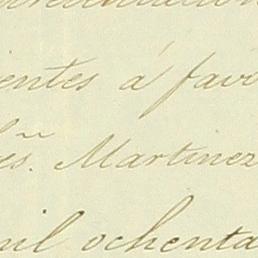 ientes á favo
es. Martinez
mil ochenta